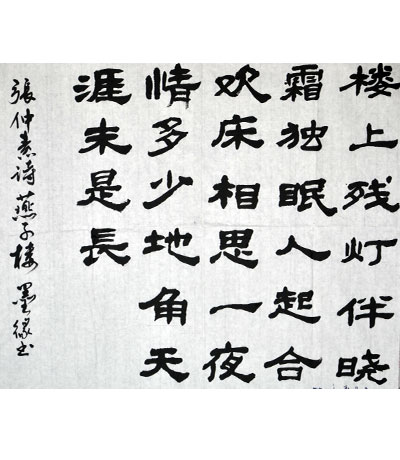 楼上残灯伴晓
霜独眠人起合
欢床相思一夜
情多少地角天
涯未是長
張仲素诗燕子楼 墨缘书